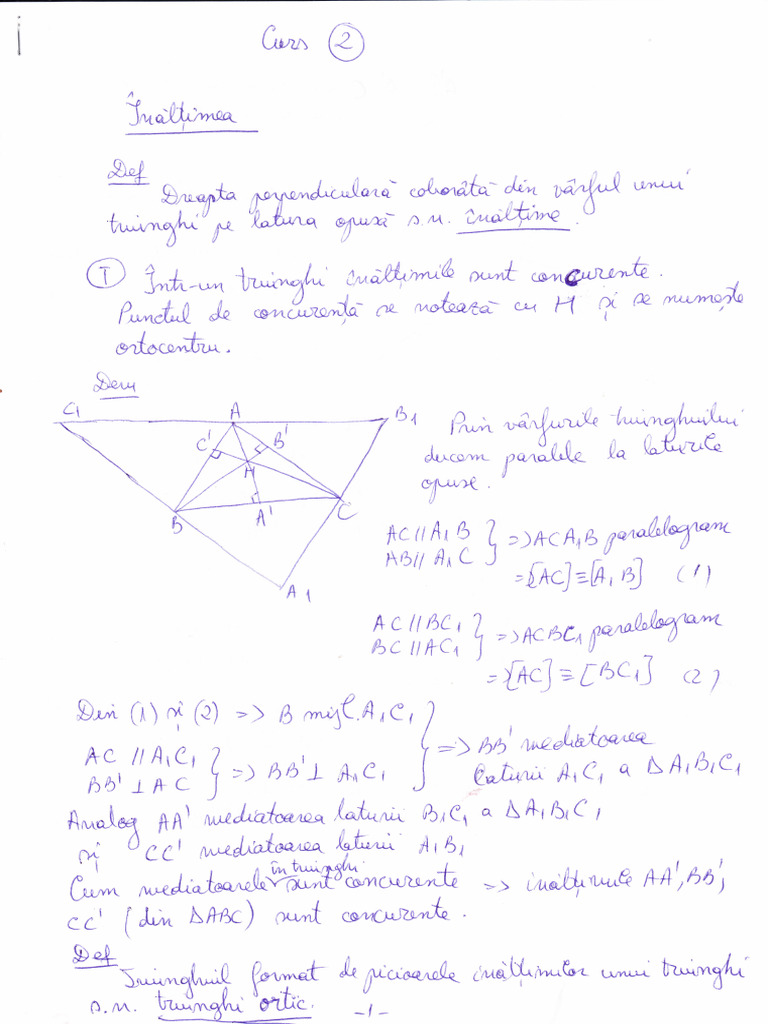 Curs 2
Înălțimea
Def
Dreapta perpendiculară coborâtă din vârful unui
triunghi pe latura opusă s.n. înălțime.
T Într-un triunghi înălțimile sunt concurente.
Punctul de concurență se notează cu H și se numește
ortocentru.
Dem
C1 A B1
C' B'
H
B A' C
A1
Prin vârfurile triunghiului
ducem paralele la laturile
opuse.
AC // A1B
AB // A1C } => ACA1B paralelogram
=> [AC] ≡ [A1B] (1)
AC // BC1
BC // AC1 } => ACBC1 paralelogram
=> [AC] ≡ [BC1] (2)
Din (1) și (2) => B mijl. A1C1
AC // A1C1
BB' ⊥ AC } => BB' ⊥ A1C1 } => BB' mediatoarea
laturii A1C1 a Δ A1B1C1
Analog AA' mediatoarea laturii B1C1 a Δ A1B1C1
și CC' mediatoarea laturii A1B1
Cum mediatoarele în triunghi sunt concurente => înălțimile AA', BB',
CC' (din ΔABC) sunt concurente.
Def
Triunghiul format de picioarele înălțimilor unui triunghi
s.n. triunghi ortic.
-1-